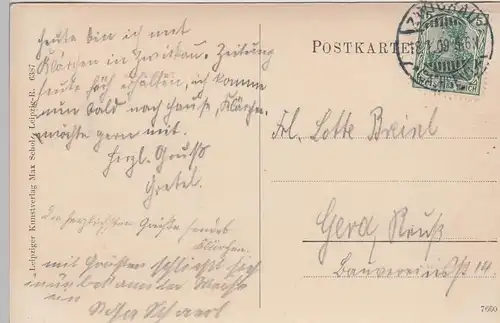 heute bin ich mit
Klärchen in Zwickau. Zeitung
heute früh erhalten, ich komme
nun bald nach Hause, Klärchen
möchte gern mit.
Herzl. Gruß
Gretel.
Die herzlichsten Grüße sendet
Klärchen.
mit Grüßen schließt sich
unbekannter Weise
an
POSTKARTE
ZWICKAU
1.09
REICH
Frl. Lotte
Gera, Reuß
Bauvereinsstr. 14.
Leipziger Kunstverlag Max Scholz, Leipzig-R. 6387
7660